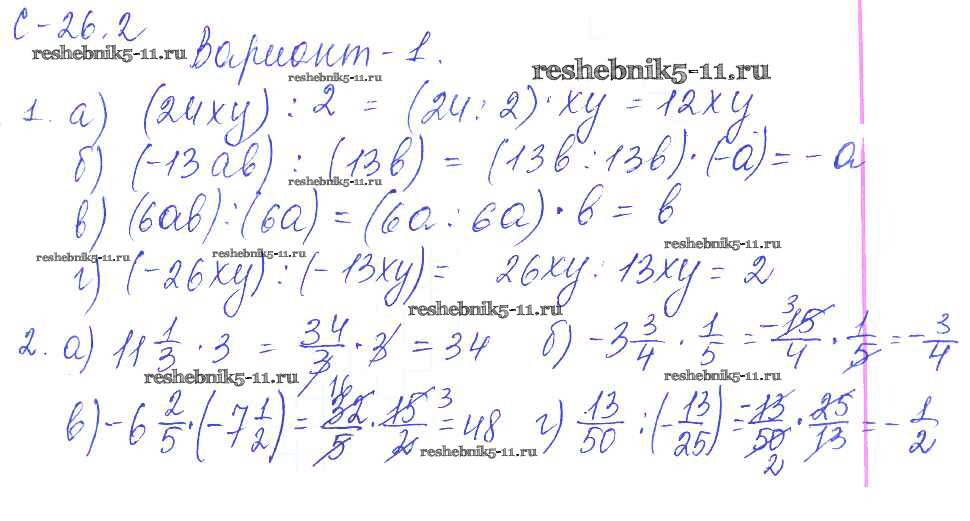 С-26.2
reshebnik5-11.ru
Вариант-1.
reshebnik5-11.ru
reshebnik5-11.ru
1. а) (24xy) : 2 = (24 : 2) · xy = 12xy
б) (-13ab) : (13b) = (13b : 13b) · (-a) = -a
reshebnik5-11.ru
в) (6ab) : (6a) = (6a : 6a) · b = b
reshebnik5-11.ru
reshebnik5-11.ru
reshebnik5-11.ru
г) (-26xy) : (-13xy) = 26xy : 13xy = 2
reshebnik5-11.ru
2. а) 11 1/3 · 3 = 34/3 · 3 = 34 б) -3 3/4 · 1/5 = -15/4 · 1/5 = -3/4
3
reshebnik5-11.ru
reshebnik5-11.ru
в) -6 2/5 · (-7 1/2) = 32/5 · 15/2 = 48 г) 13/50 : (-13/25) = -13/50 · 25/13 = -1/2
16
3
2
reshebnik5-11.ru